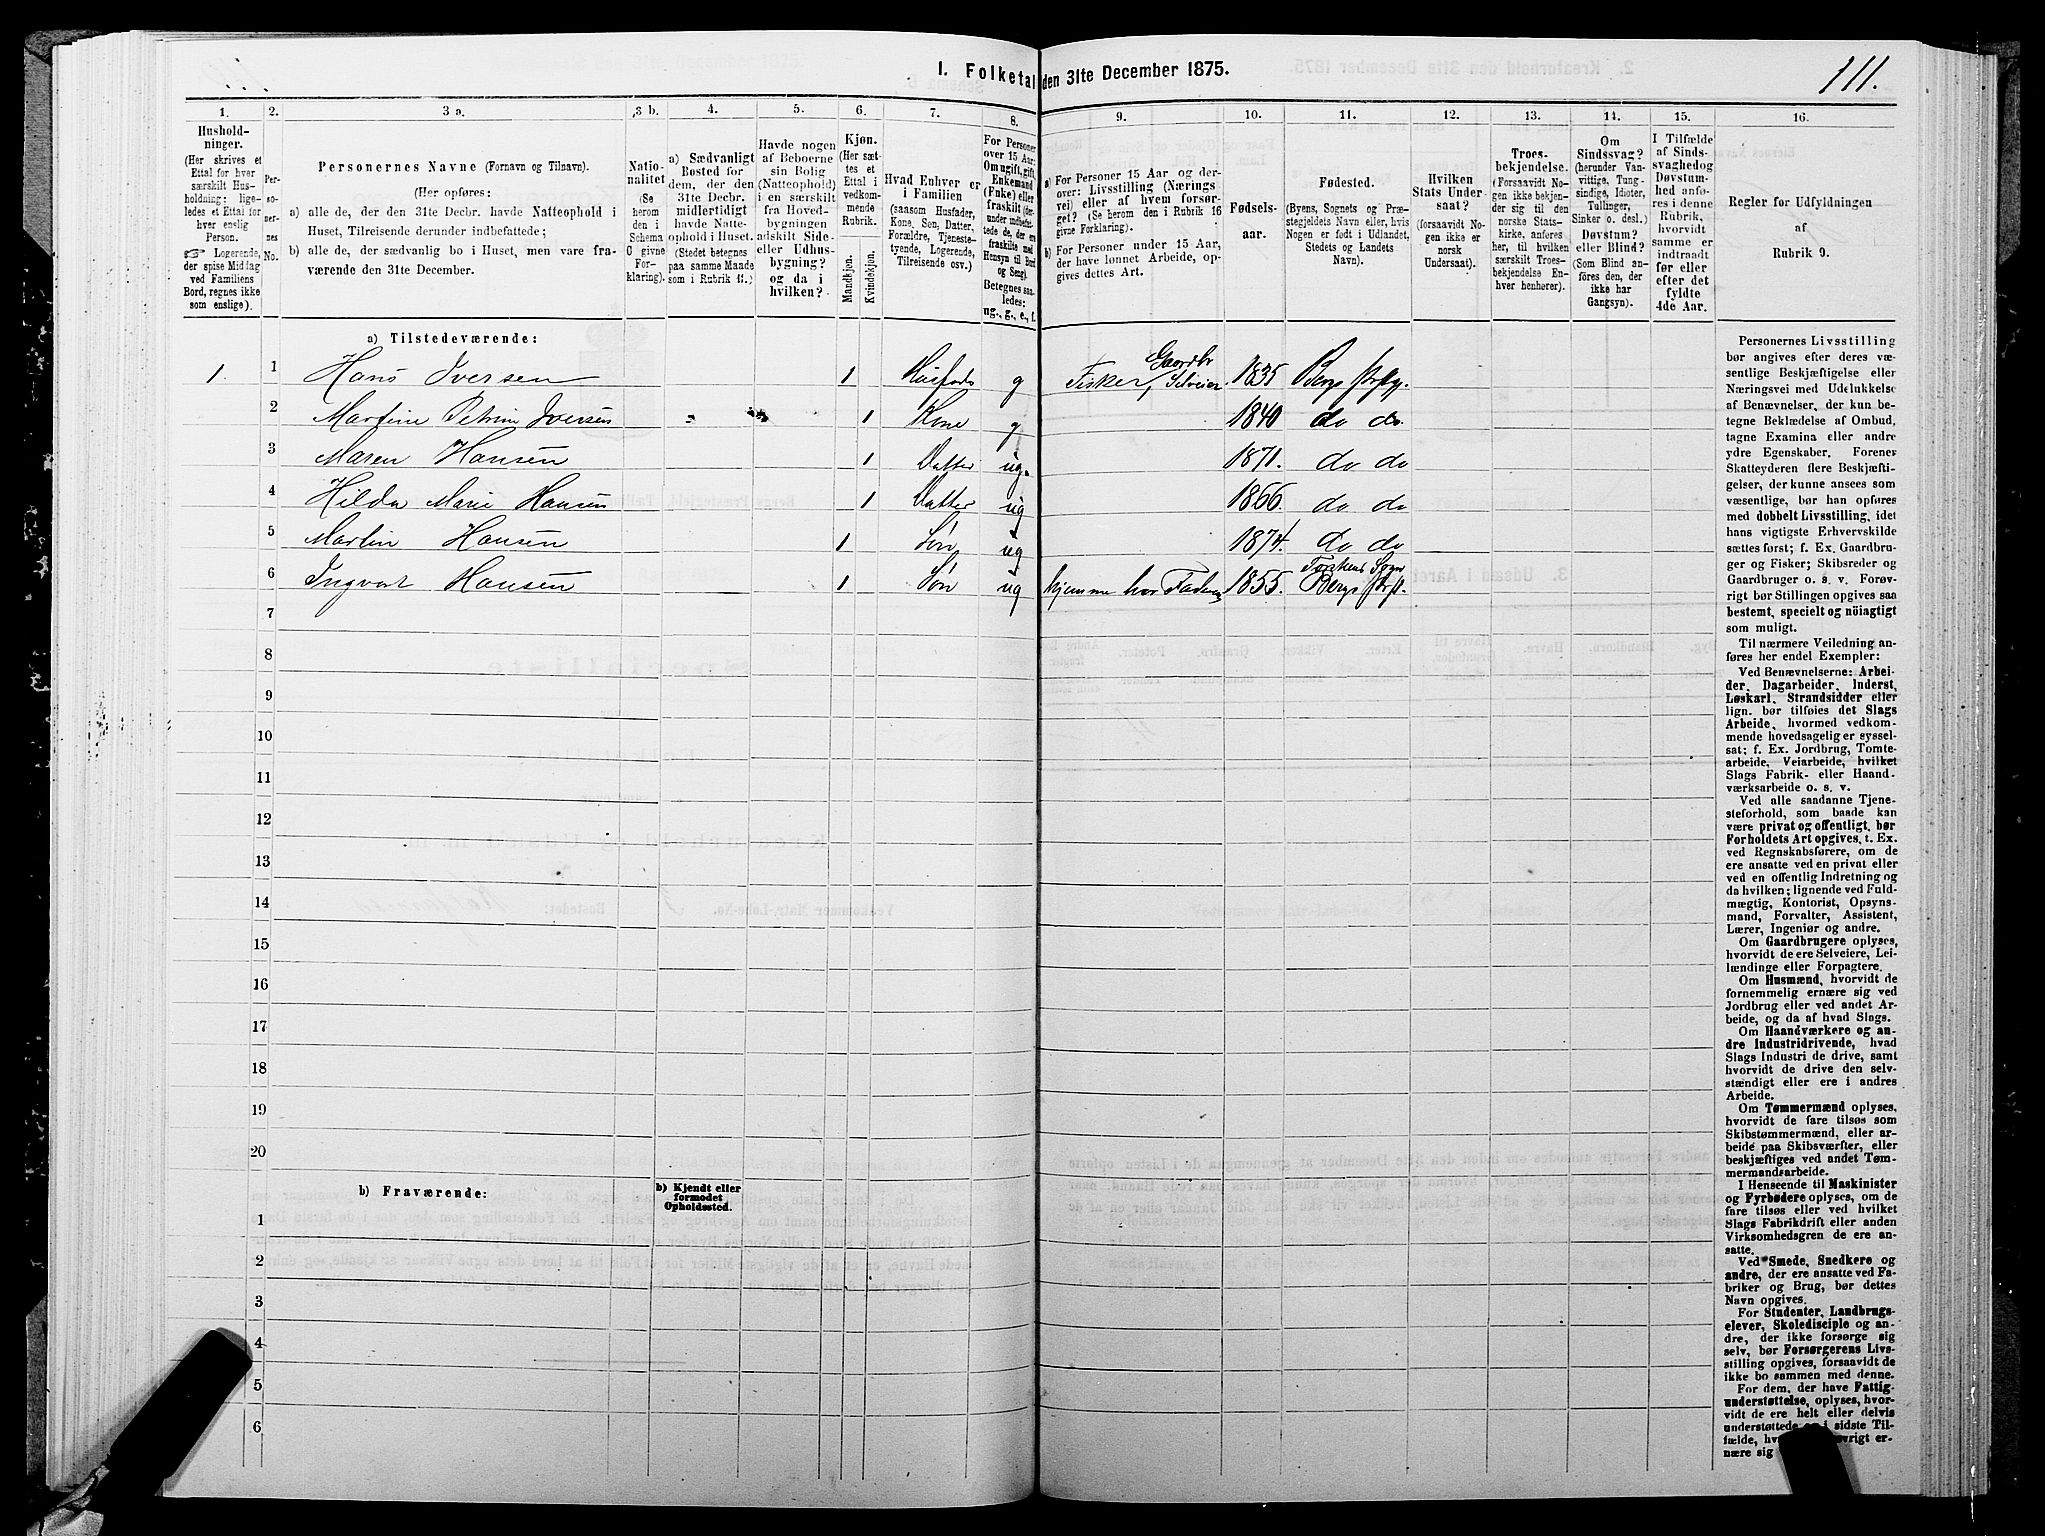 1. Folketal den 31te December 1875.
111.
1.
Hushold-
ninger.
(Her skrives et
Ettal for hver
særskilt Hus-
holdning; lige-
ledes et Ettal for
hver enslig
Person.
☞ Logerende,
der spise Middag
ved Familiens
Bord, regnes ikke
som enslige).
2.
Per-
so-
ner-
nes
No.
3 a.
Personernes Navne (Fornavn og Tilnavn).
(Her opføres:
a) alle de, der den 31te Decbr. havde Natteophold i
Huset, Tilreisende derunder indbefattede;
b) alle de, der sædvanlig bo i Huset, men vare fra-
værende den 31te December.
3 b.
Natio-
nalitet
(Se
herom
den i
Schema
6 givne
For-
klaring).
4.
a) Sædvanligt
Bosted for
dem, der den
31te Decbr.
midlertidigt
havde Natte-
ophold i Huset.
(Stedet betegnes
paa samme Maade
som i Rubrik 11.)
5.
Havde nogen
af Beboerne
sin Bolig
(Natteophold)
i en særskilt
fra Hoved-
bygningen
adskilt Side-
eller Udhus-
bygning?
og da i
hvilken?
6.
Kjøn.
(Her sæt-
tes et
Ettal i
vedkom-
mende
Rubrik.
Mandkjøn.
Kvindekjøn.
7.
Hvad Enhver er
i Familien
(saasom Husfader,
Kone, Søn, Datter,
Forældre, Tjeneste-
tyende, Logerende,
Tilreisende osv.)
8.
For Personer
over 15 Aar:
Om ugift, gift,
Enkemand
(Enke) eller
fraskilt (der-
under indbefat-
tede de, der ere
fraskilte med
Hensyn til Bord
og Seng).
Betegnes saa-
ledes:
ug., g., e., f.
9.
a) For Personer 15 Aar og der-
over: Livsstilling (Nærings-
vei) eller af hvem forsør-
get? (Se herom den i Rubrik 16
givne Forklaring).
b) For Personer under 15 Aar,
der have lønnet Arbeide, op-
gives dettes Art.
10.
Fødsels-
aar.
11.
Fødested.
(Byens, Sognets og Præ-
stegjeldets Navn eller, hvis
Nogen er født i Udlandet,
Stedets og Landets
Navn).
12.
Hvilken
Stats Under-
saat?
(forsaavidt No-
gen ikke er
norsk
Undersaat).
13.
Troes-
bekjendelse.
(Forsaavidt No-
gen ikke bekjen-
der sig til den
norske Stats-
kirke, anføres
her, til hvilken
særskilt Troes-
bekjendelse En-
hver henhører).
14.
Om
Sindssvag?
(herunder Van-
vittige, Tung-
sindige, Idioter,
Tullinger,
Sinker o. desl.)
Døvstum?
eller Blind?
(Som Blind an-
føres den, der
ikke har
Gangsyn).
15.
I Tilfælde
af Sinds-
svaghed og
Døvstum-
hed anfø-
res i denne
Rubrik,
hvorvidt
samme er
indtraadt
før eller
efter det
fyldte
4de Aar.
16.
Regler for Udfyldningen
af
Rubrik 9.
a) Tilstedeværende:
1. 1 Hans Iversen 1 Husfader g Fisker, Gaardbr Selveier 1835 Bergs Prstgj.
2 Martine Petrine Iversen 1 Kone g 1840 do do.
3 Maren Hansen 1 Datter ug. 1871. do do
4 Hilda Marie Hansen 1 Datter ug 1866. do do
5 Martin Hansen 1 Søn ug 1874. do do
6 Ingvart Hansen 1 Søn ug hjemme hos Faderen 1855. Torskens Sogn Bergs Prst.
7
8
9
10
11
12
13
14
15
16
17
18
19
20
b) Fraværende:
b) Kjendt eller
formodet
Opholdssted.
1
2
3
4
5
6
Personernes Livsstilling
bør angives efter deres væ-
sentlige Beskjæftigelse eller
Næringsvei med Udelukkelse
af Benævnelser, der kun be-
tegne Beklædelse af Ombud,
tagne Examina eller andre
ydre Egenskaber. Forener
Skatteyderen flere Beskjæfti-
gelser, der kunne ansees som
væsentlige, bør han opføres
med dobbelt Livsstilling, idet
hans vigtigste Erhvervskilde
sættes først; f. Ex. Gaardbru-
ger og Fisker; Skibsreder og
Gaardbruger o. s. v. Forøv-
rigt bør Stillingen opgives saa
bestemt, specielt og nöiagtigt
som muligt.
Til nærmere Veiledning an-
føres her endel Exempler:
Ved Benævnelserne: Arbei-
der, Dagarbeider, Inderst,
Løskarl, Strandsidder eller
lign. bør tilføies det Slags
Arbeide, hvormed vedkom-
mende hovedsagelig er syssel-
sat; f. Ex. Jordbrug, Tomte-
arbeide, Veiarbeide, hvilket
Slags Fabrik- eller Haand-
værksarbeide o. s. v.
Ved alle saadanne Tjene-
steforhold, som baade kan
være privat og offentligt, bør
Forholdets Art opgives, t. Ex.
ved Regnskabsførere, om de
ere ansatte ved en privat eller
ved en offentlig Indretning og
da hvilken; lignende ved Fuld-
mægtig, Kontorist, Opsyns-
mand, Forvalter, Assistent,
Lærer, Ingeniør og andre.
Om Gaardbrugere oplyses,
hvorvidt de ere Selveiere, Lei-
lændinge eller Forpagtere.
Om Husmænd, hvorvidt de
fornemmelig ernære sig ved
Jordbrug eller ved andet Ar-
beide, og da af hvad Slags.
Om Haandværkere og an-
dre Industridrivende, hvad
Slags Industri de drive, samt
hvorvidt de drive den selv-
stændigt eller ere i andres
Arbeide.
Om Tømmermænd oplyses,
hvorvidt de fare tilsøs som
Skibstømmermænd, eller ar-
beide paa Skibsværfter, eller
beskjæftiges ved andet Tøm-
mermandsarbeide.
I Henseende til Maskinister
og Fyrbødere oplyses, om de
fare tilsøs eller ved hvilket
Slags Fabrikdrift eller anden
Virksomhedsgren de ere an-
satte.
Ved Smede, Snedkere og
andre, der ere ansatte ved Fa-
briker og Brug, bør dettes
Navn opgives.
For Studenter, Landbrugs-
elever, Skoledisciple og an-
dre, der ikke forsørge sig
selv, bør Forsørgerens Livs-
stilling opgives, forsaavidt de
ikke bo sammen med denne.
For dem, der have Fattig-
understøttelse, oplyses, hvor-
vidt de ere helt eller delvis
understøttede og i sidste Til-
fælde, øvrigt er-
nære sig